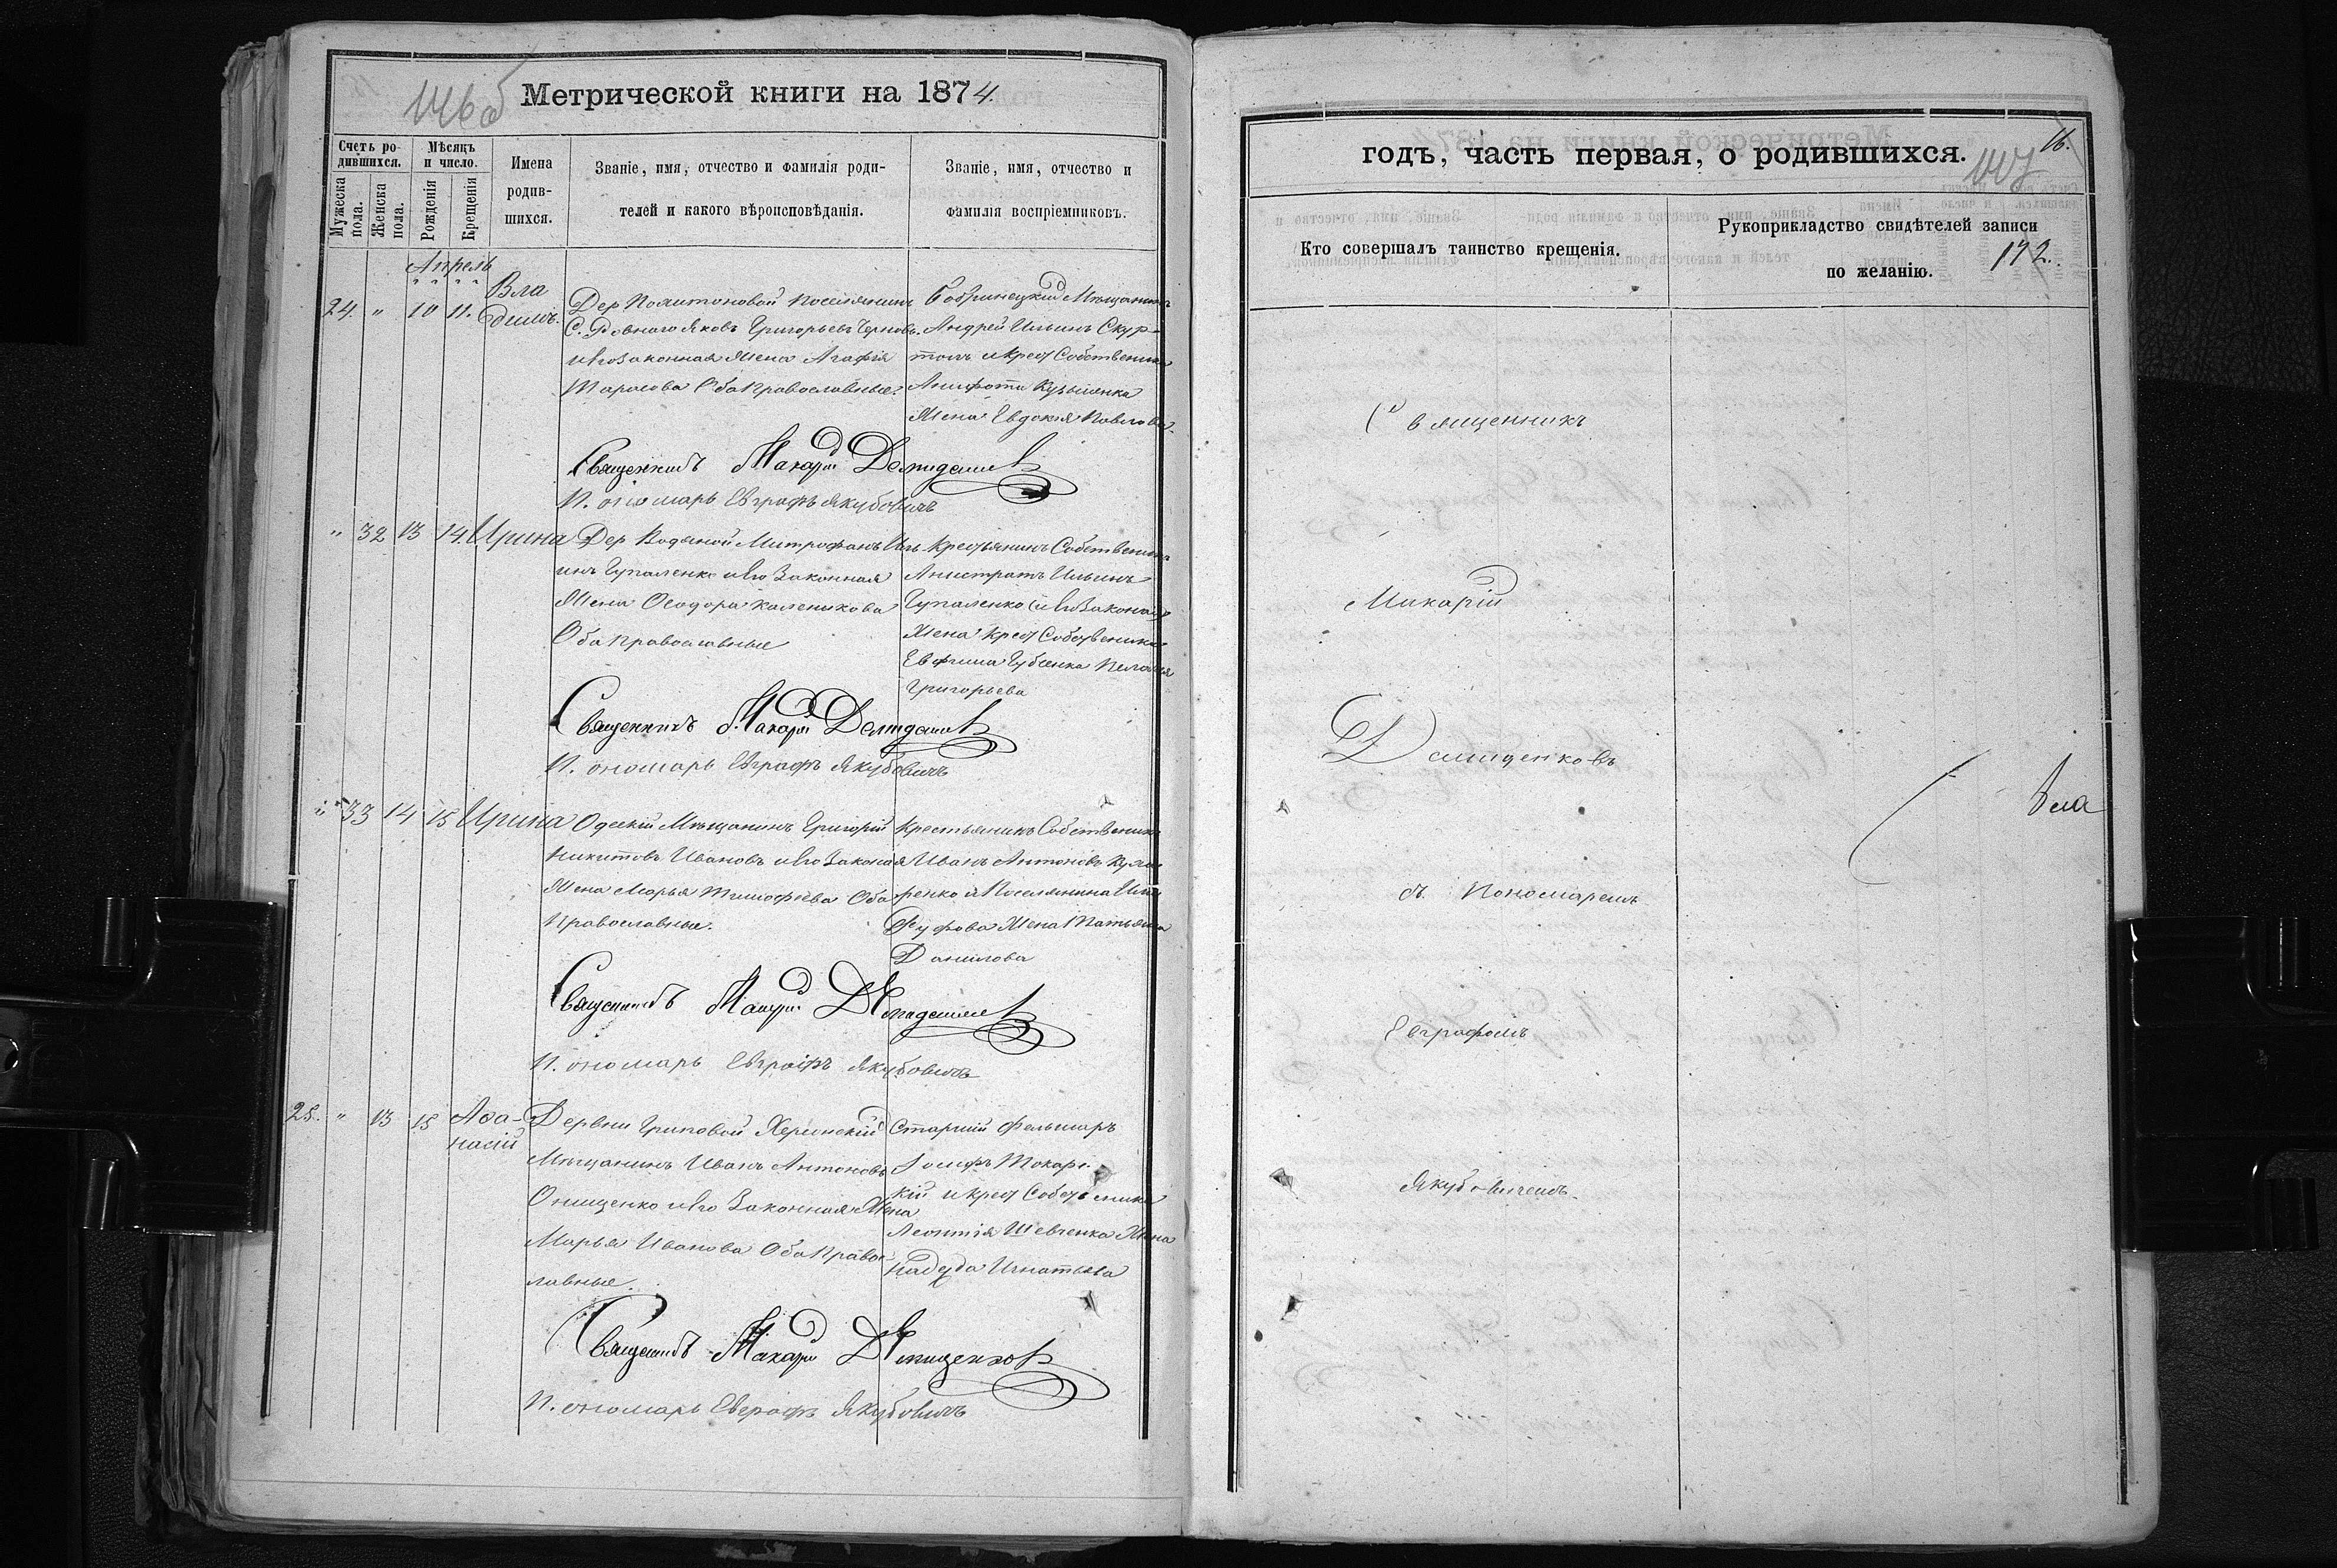 146 об
Метрической книги на 1874.
Счетъ ро-
дившихся.
Мужеска
пола.
Женска
пола.
Мѣсяцъ
и число.
Рожденія
Крещенія
Имена
родив-
шихся.
Званіе, имя, отчество и фамилія роди-
телей и какого вѣроисповѣданія.
Званіе, имя, отчество и
фамилія воспріемниковъ.
Апрель
24. " 10 11. Вла
димъ.
Дер Поситоновой поселянинъ
С. Ровнаго Яковъ Григорьевъ Черновъ
и его законная жена Агафія
Тарасова Оба Православные.
Бобринецкій Мѣщанинъ
Андрей Ильинъ Скур-
тъ и крес Собственика
Кузьменка
Жена Евдокія Павлова.
Священникъ Макарій Демиденковъ
Пономарь Евграфъ Якубовичъ
" 32 13 14. Ирина
Дер Водяной Митрофанъ Иль
инъ Гупаленко и его Законная
Жена Ѳеодора Каленикова
Оба Православные
Крестьянинъ Собственикъ
Анистратъ Ильинъ
Гупаленко и его Законая
Жена крес Собственика
Евфима Губенка Пелагія
Григорьева
Священникъ Макарій Демиденковъ
Пономарь Евграфъ Якубовичъ
" 33 14 15 Ирина
Одесскій Мѣщанинъ Григорій
Никитовъ Ивановъ и его Законая
Жена Марья Тимофѣева Оба
Православные.
Крестьянинъ Собственикъ
Иванъ Антоновъ Куха
ренко и Поселянина
Жена Татьяна
Данилова
Священникъ Макарій Демиденковъ
Пономарь Евграфъ Якубовичъ
25. " 13 15 Аѳа-
насій
Деревни Гриповой Херсонскій
Мѣщанинъ Иванъ Антоновъ
Онищенко и его Законная Жена
Марья Иванова Оба Правос
лавные
Старшій Фельшаръ
Іосифъ Токарс
кій и крес Собственика
Леонтія Шевченка Жена
Игнатьева
Священникъ Макарій Демиденковъ
Пономарь Евграфъ Якубовичъ
годъ, часть первая, о родившихся.
16.
147
Кто совершалъ таинство крещенія.
Рукоприкладство свидѣтелей записи
по желанію.
172.
Священникъ
Макарій
Демиденковъ
съ Пономаремъ
Евграфомъ
Якубовичемъ.